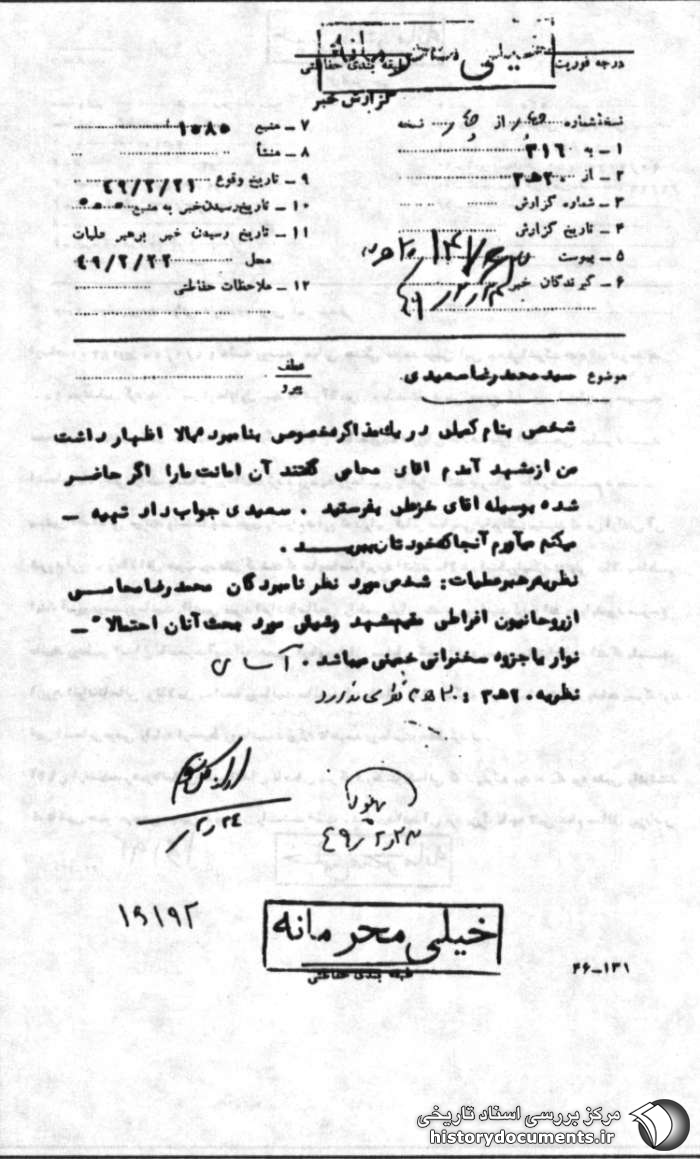 درجه فوریت
طبقه بندی حفاظتی
گزارش خبر
نسخه شماره از نسخه
۱ ـ به ۳۱۶
۲ ـ از ۲۰ه۳
۳ ـ شماره گزارش
۴ ـ تاریخ گزارش
۵ ـ پیوست
۶ ـ گیرندگان خبر
۷ ـ منبع ۱۰۸۰
۸ ـ منشأ
۹ ـ تاریخ وقوع ۴۹/۲/۲۱
۱۰ ـ تاریخ رسیدن خبر به منبع
۱۱ ـ تاریخ رسیدن خبر برهبر عملیات
محل ۴۹/۲/۲۲
۱۲ ـ ملاحظات حفاظتی
موضوع سیدمحمدرضا سعیدی
عطف
پیرو
شخصی بنام کمیلی در یک مذاکره خصوصی بنامبرده بالا اظهار داشت
من از مشهد آمدم آقای محامی گفتند آن امانت ما را اگر حاضر
شده بوسیله آقای بفرستید . سعیدی جواب داد تهیه ـ
میکنم میآورم آنجا که خودتان ببرید .
نظریه رهبر عملیات : شخص مورد نظر نامبردگان محمدرضا محامی
از روحانیون افراطی مقیم مشهد و شیئی مورد بحث آنان احتمالا ـ
نوار یا جزوه سخنرانی خمینی میباشد .
نظریه ۲۰ه۳ : نظری ندارد
۲۴ر۲
۴۹ر۲ر۲۳
۱۹۱۹۲
خیلی محرمانه
طبقه بندی حفاظتی
۲۶ـ۱۳۱
مرکز بررسی اسناد تاریخی
historydocuments.ir